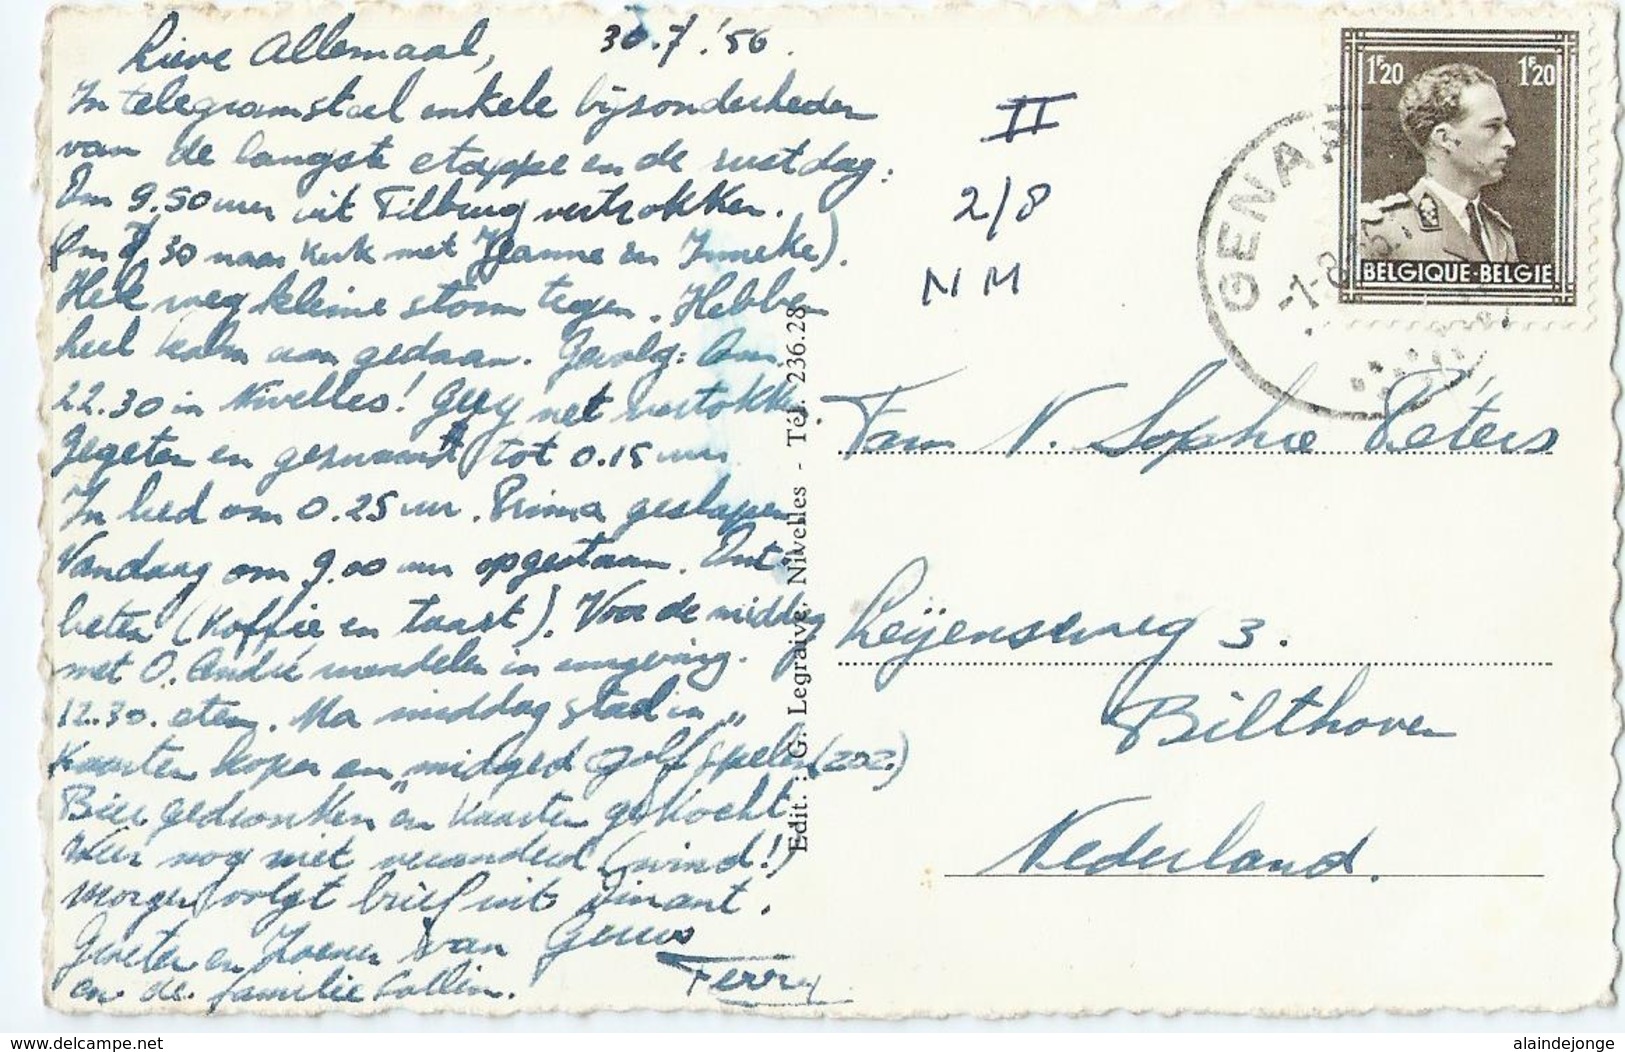 Lieve Allemaal, 30.7.'56.
In telegramstael enkele bijsonderheden
van de langste etappe en de rustdag:
Om 9.50 uur uit Tilburg vertrokken.
(Om 7.30 naar kerk met Jeanne en Inneke).
Hele weg kleine storm tegen. Hebben
heel kalm aan gedaan. Gevolg: Om
22.30 in Nivelles! Geey net vertrokken.
Gegeten en gepraat tot 0.15 uur
In bed om 0.25 uur. Prima geslapen
Vandaag om 9.00 uur opgestaan. Ont-
beten (koffie en taart). Voor de middag
met O. André wandelen in omgeving.
12.30. eten. Na middag stad in „
Kaarten kopen en „midged golf spelen (zoz.)
Bier gedronken en kaarten gekocht
Weer nog niet veranderd (wind!)
Morgen volgt brief uit Dinant.
Groeten en Zoenen van
en de familie Collin. Ferry
Edit. : G. Legraive, Nivelles - Tél. 236.28
II
2/8
N M
1F20 1F20
BELGIQUE-BELGIE
GENA
-1-8
Fam V. Sophie Peters
Leijenseweg 3.
Bilthoven
Nederland.
www.delcampe.net
alaindejonge